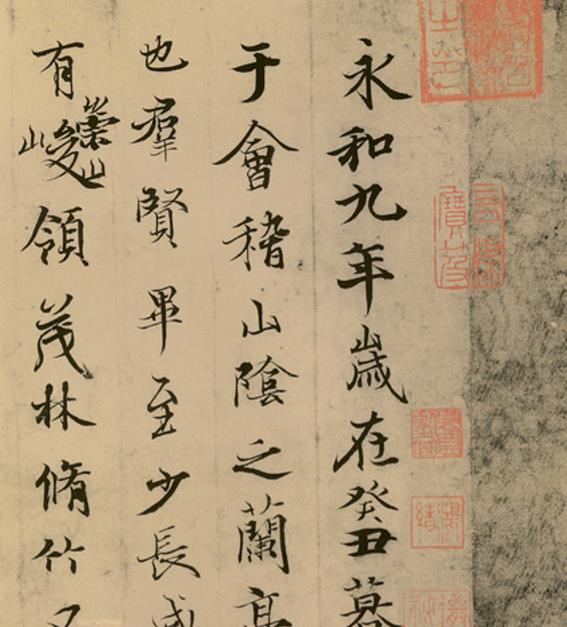 永和九年歲在癸丑暮
于會稽山陰之蘭亭
也羣賢畢至少長咸
有崇山峻領茂林脩竹又